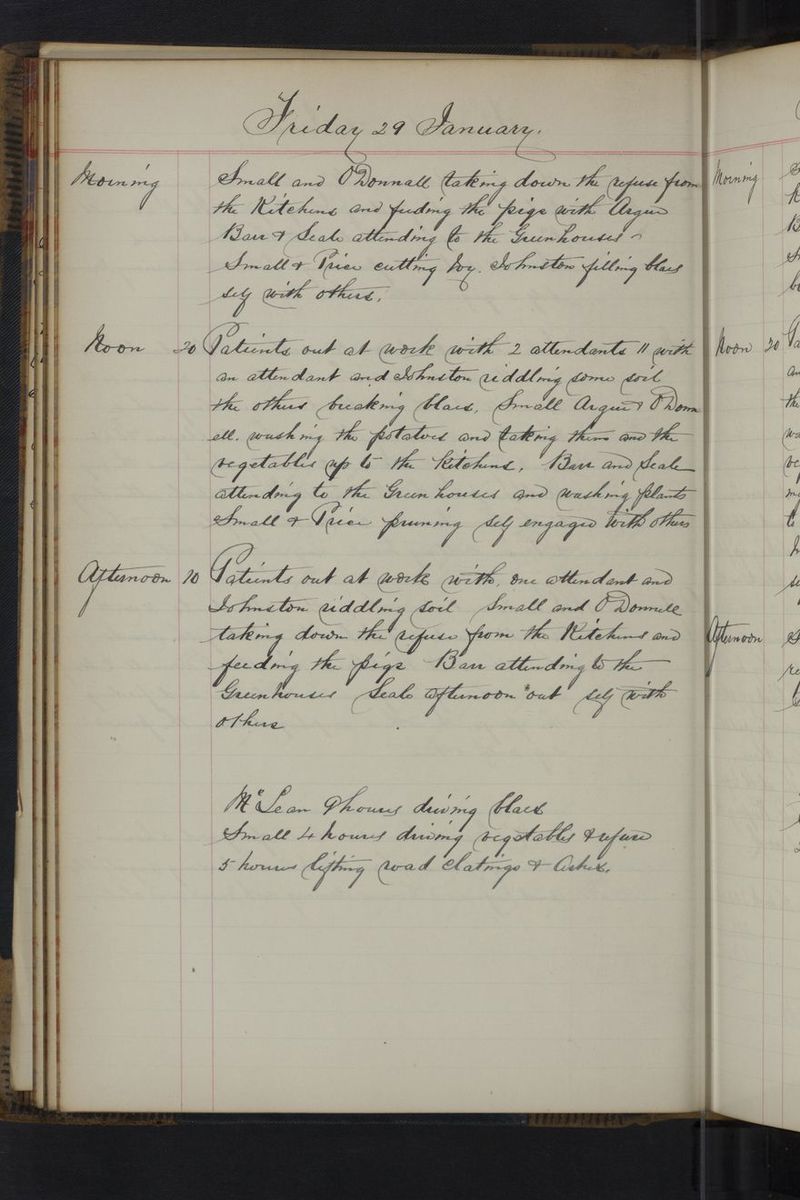 Friday 29 January.
Morning Small and O'Donnall taking down the refuse from
the Kitchens and feeding the pigs with Argue
Barr & Seale attending to the Greenhouses
Small & Price cutting Ivy. Johnston filling blaes
self with others.
Noon 20 Patients out at work with 2 attendants 11 with
an attendant and Johnston riddling some soil
the others breaking blaes. Small Argue & O'Donn
ell. washing the potatoes and taking them and the
vegetables up to the Kitchens. Barr and Seale
attending to the Green houses and washing plants
Small & Price pruning self engaged with others
Afternoon 10 Patients out at work with one attendant and
Johnston riddling soil Small and O'Donnell
taking down the refuse from the Kitchens and
feeding the pigs Barr attending to the
Greenhouses Seale afternoon out self with
others
McLean 9 hours driving blaes
Small 4 hours driving vegetables & refuse
5 hours lifting road & Ashes.
Morning
Noon 20
Afternoon